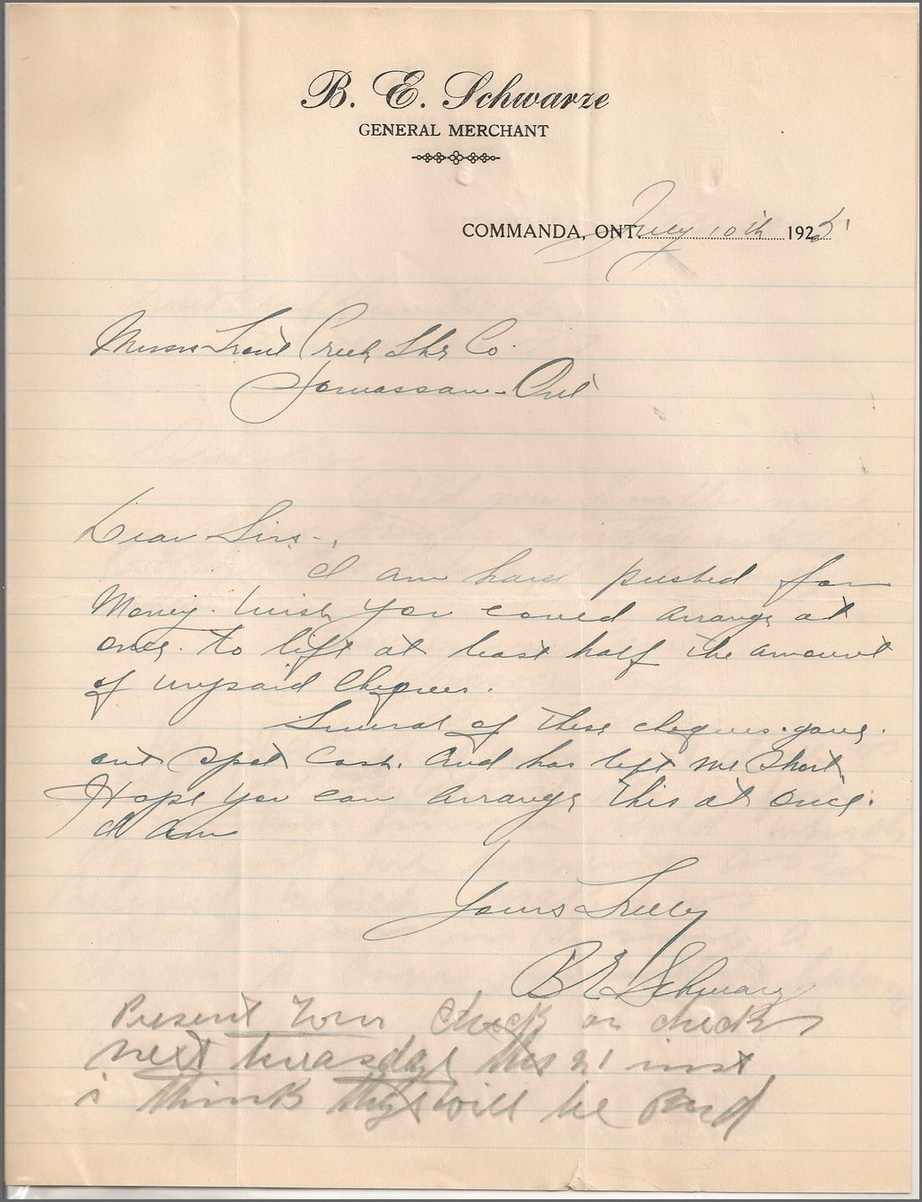 B. E. Schwarze
GENERAL MERCHANT
COMMANDA, ONT. July 10th 1925
Messrs Trout Creek Lbr Co.
Ont
Dear Sirs-,
I am hard pushed for
Money. Wish you could arrange at
once. to lift at least half the amount
of unpaid Cheques.
Several of these cheques. gave.
out spot Cash. And has left me Short
Hope you can arrange this at once.
I am
Yours Truly
B E Schwarze
Present your check or checks
next the 21 inst
i think they will be